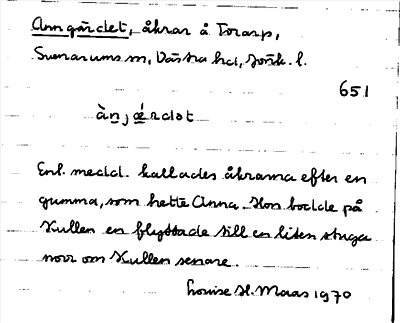 Anngärdet, åkrar å Torarp,
Svenarums sn, Västra hd, Jönk. l.
651
àn,jǽrdət
Enl. medd. kallades åkrarna efter en
gumma, som hette Anna. Hon bodde på
Kullen en flyttade till en liten stuga
norr om Kullen senare.
Louise H. Maas 1970